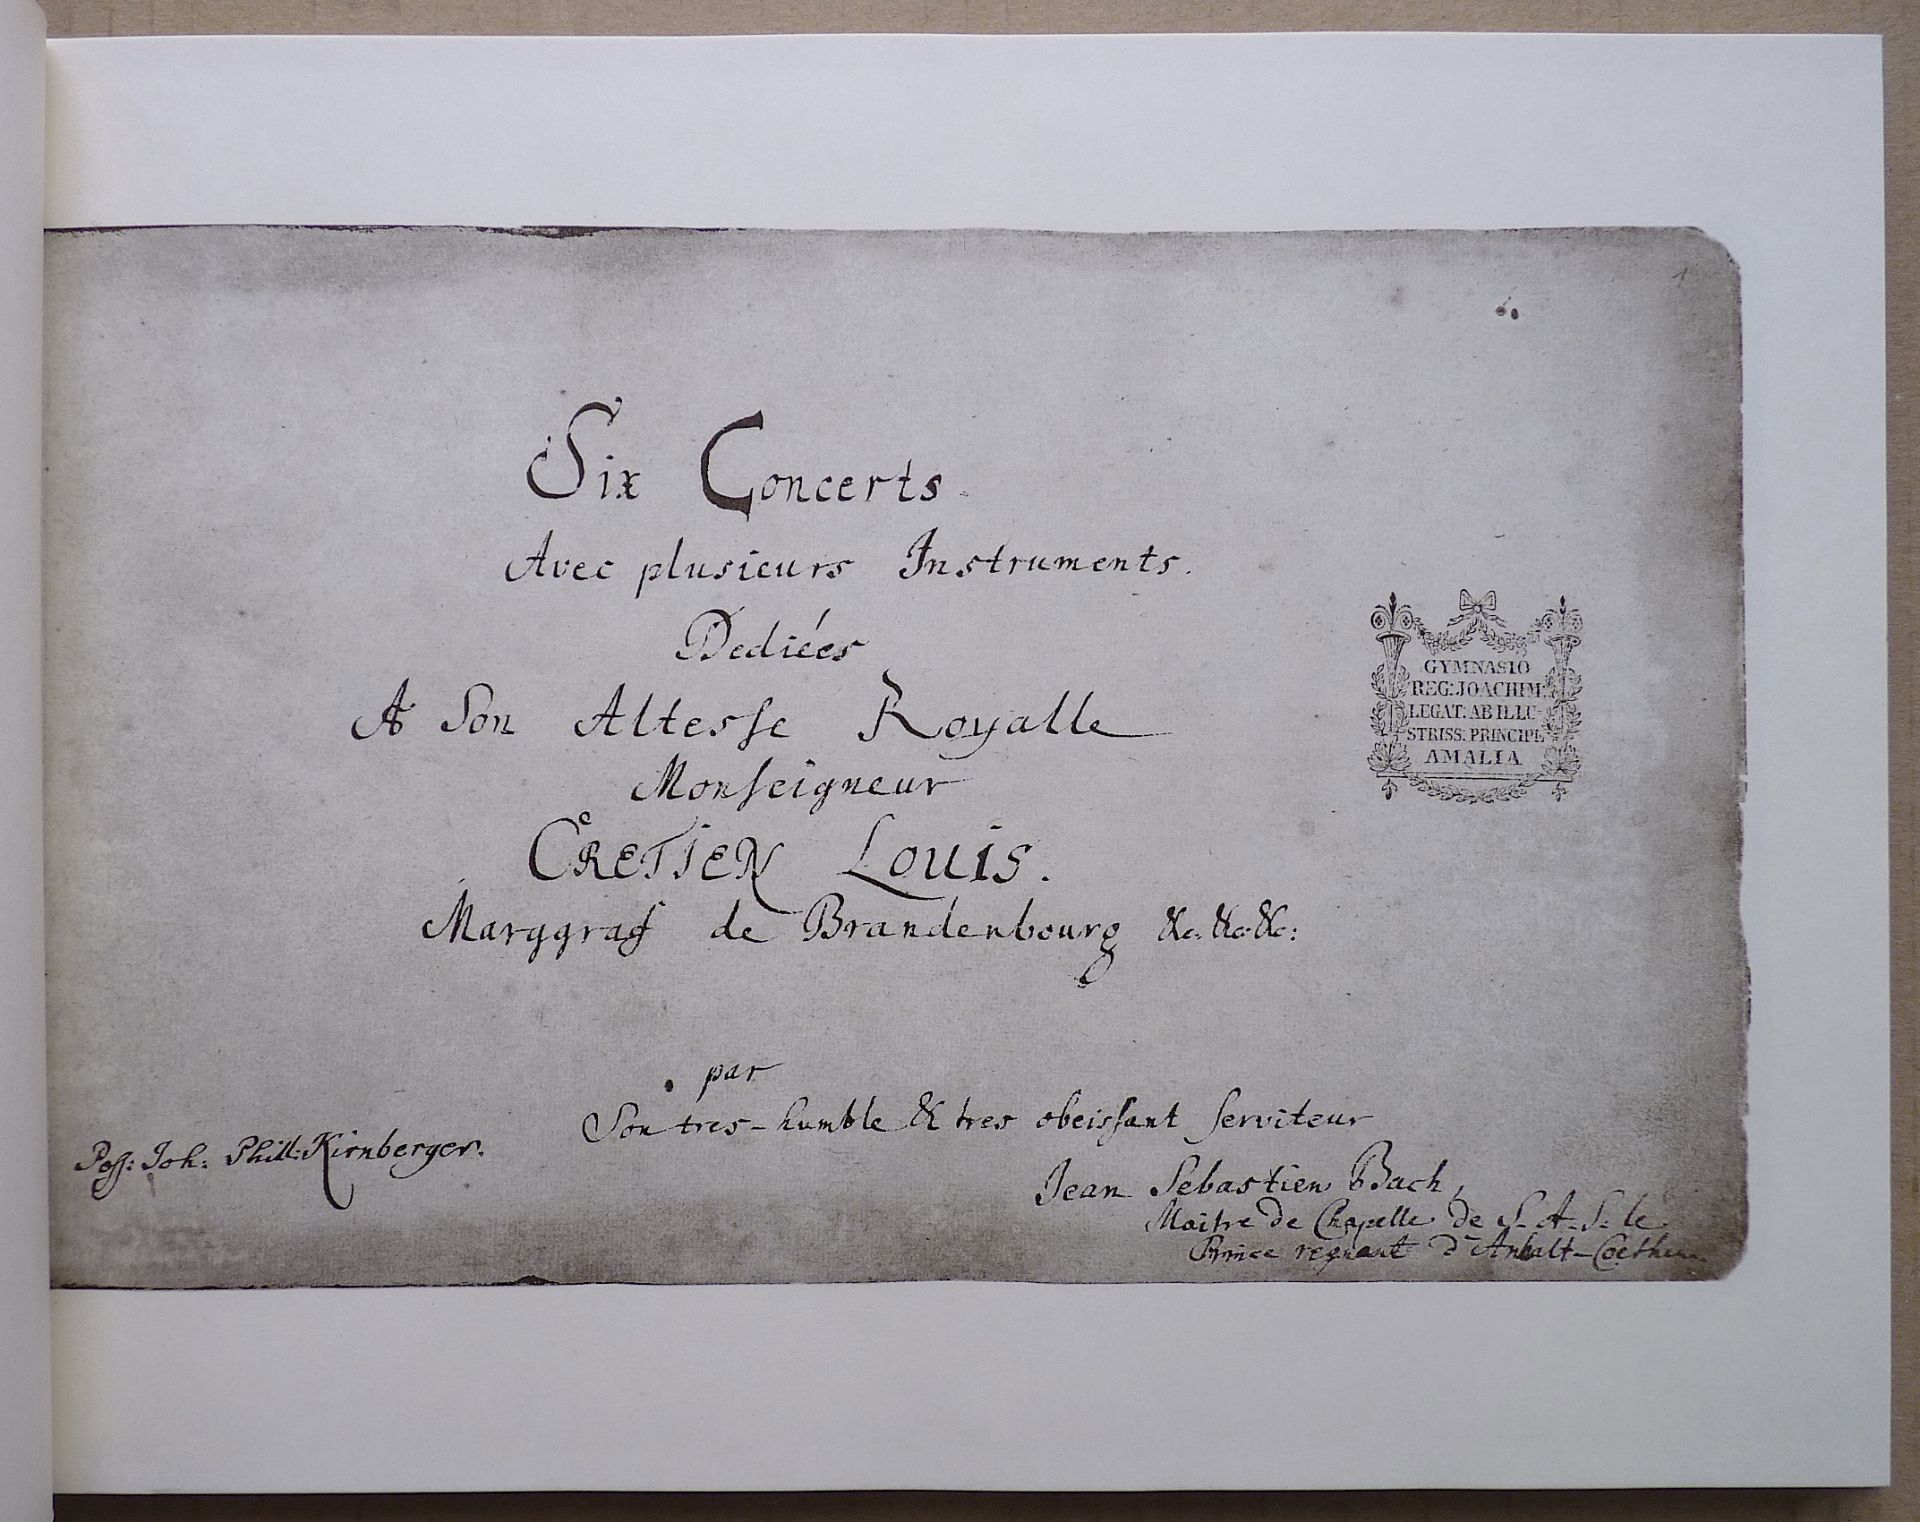 1
Six Concerts
Avec plusieurs Instruments.
Dediées
A Son Altesse Royalle
Monseigneur
CRETIEN LOUIS.
Marggraf de Brandenbourg &c. &c. &c:
GYMNASIO
REG: JOACHIM:
LEGAT: AB ILLU-
STRISS: PRINCIPI
AMALIA
par
Son tres-humble & tres obeissant serviteur
Poss: Joh: Phill: Kirnberger.
Jean Sebastien Bach,
Maitre de Chapelle de S. A. S. le
Prince regnant d'Anhalt-Coethen